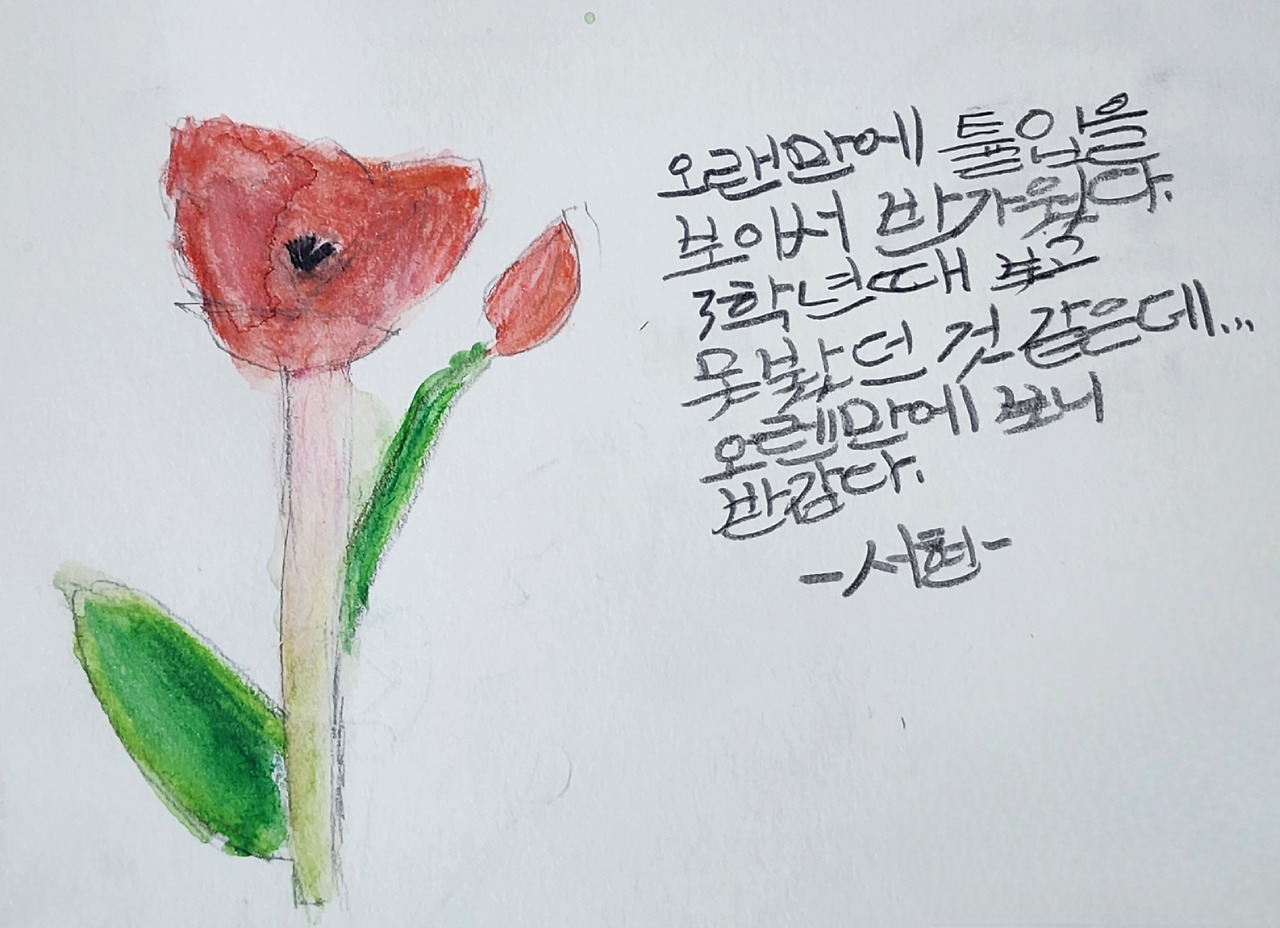 오랜만에 튤입을
보아서 반가웠다.
3학년때 보고
못봤던 것 같은데...
오렌만에 보니
반갑다.
-서현-